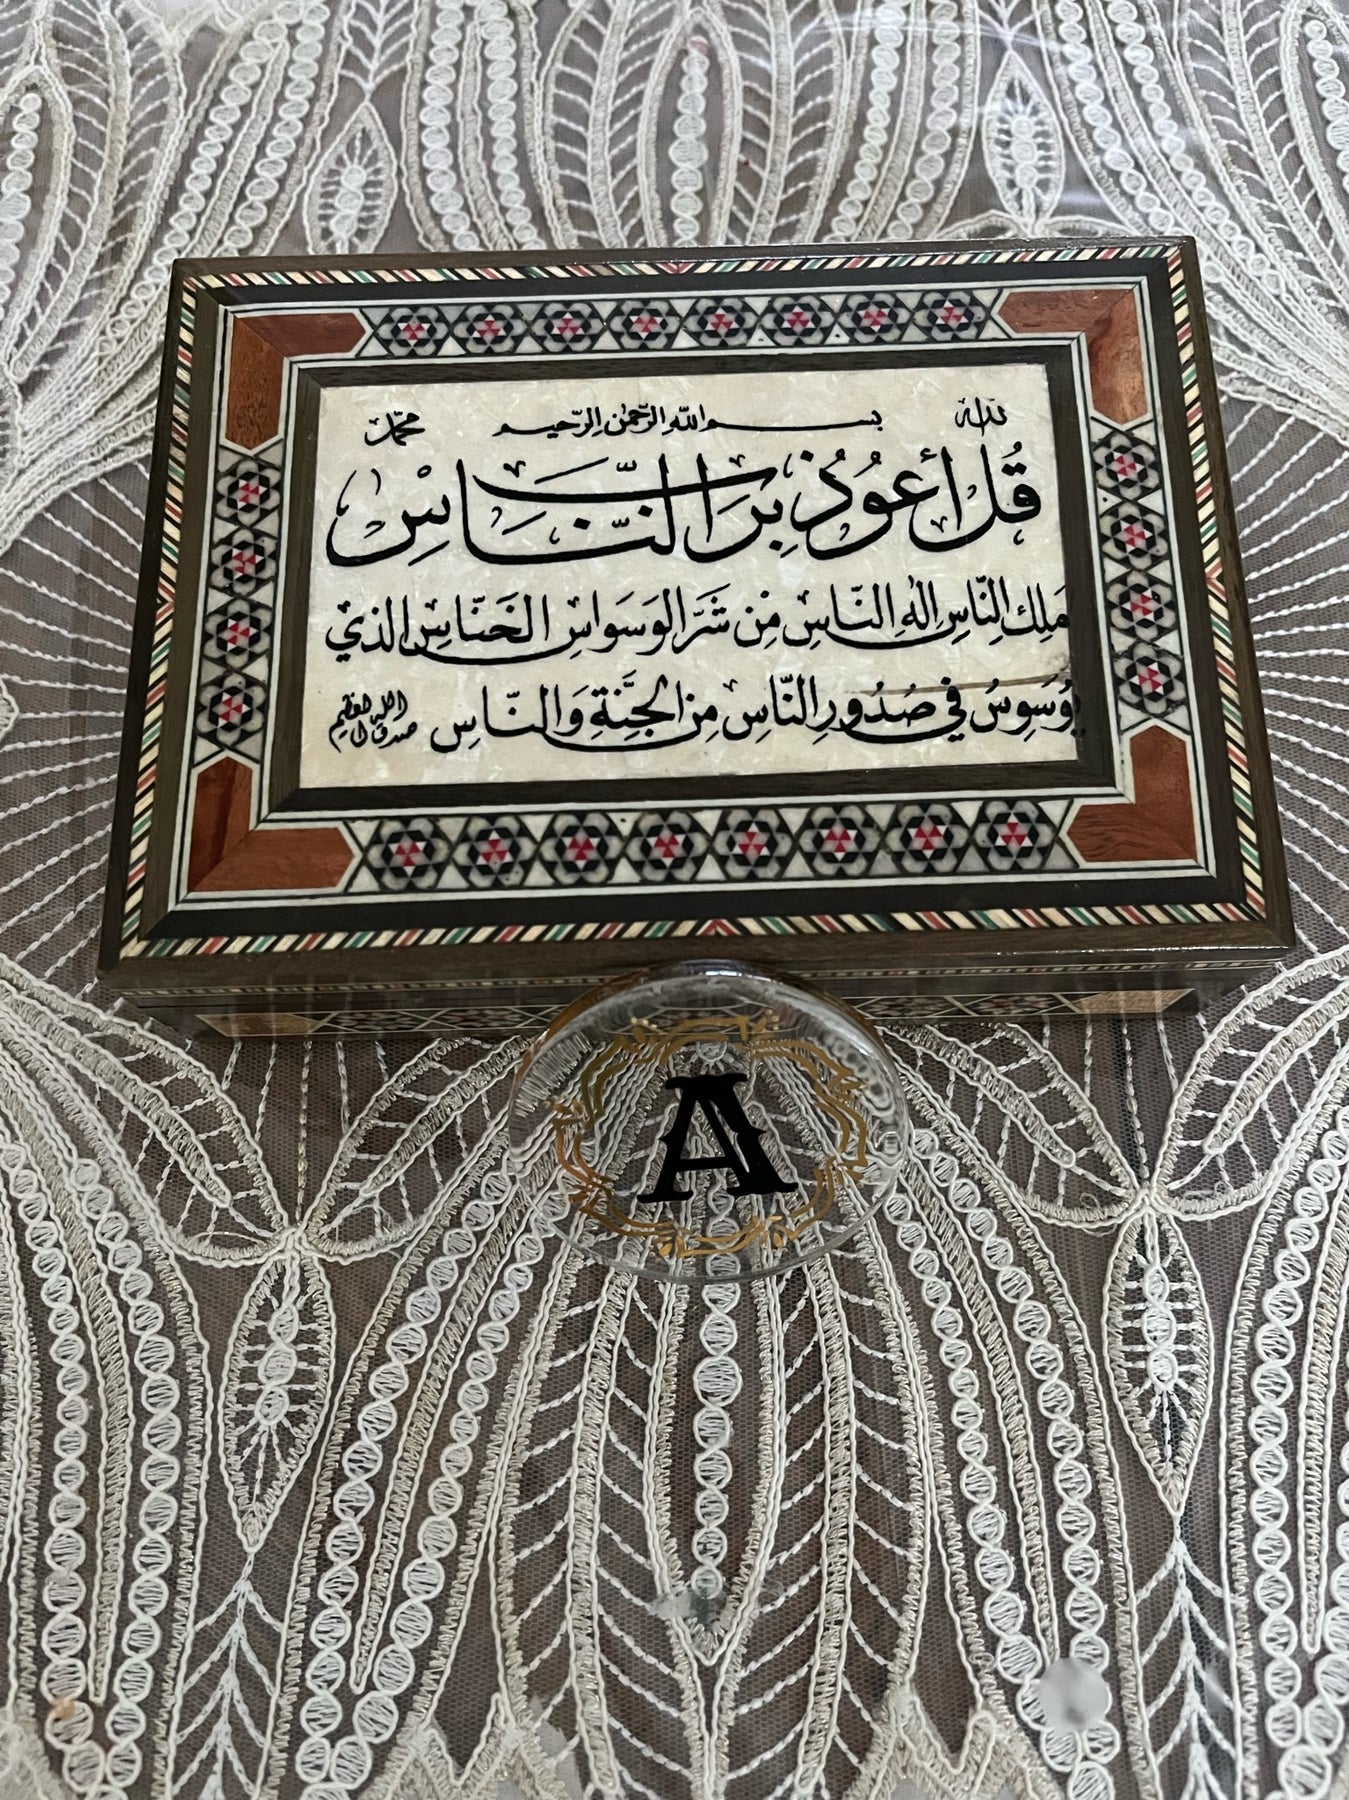 الله بسم الله الرحمن الرحيم محمد
قُلْ أَعُوذُ بِرَبِّ النَّاسِ
مَلِكِ النَّاسِ إِلٰهِ النَّاسِ مِنْ شَرِّ الوَسْوَاسِ الخَنَّاسِ الذي
يُوَسْوِسُ في صُدُورِ النَّاسِ مِنَ الجِنَّةِ وَالنَّاسِ صدق الله العظيم
A